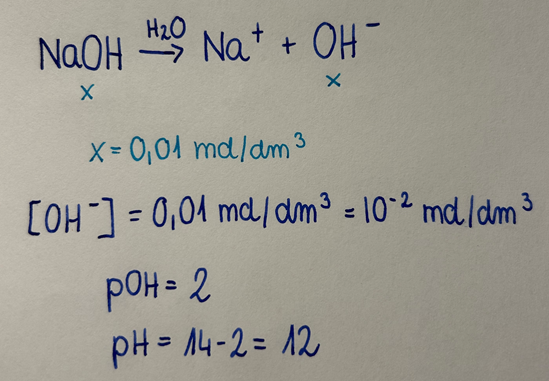 NaOH H₂O → Na⁺ + OH⁻
x x
x = 0,01 mol/dm³
[OH⁻] = 0,01 mol/dm³ = 10⁻² mol/dm³
pOH = 2
pH = 14-2 = 12